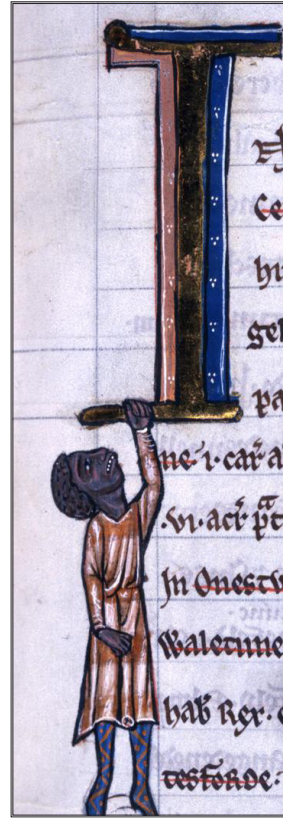 I
Ce
hı
gel
pa
ne· ı· car̃ a
·vı· acr̃ pt̃
In Onestv
Waletune
hab̃ Rex·
testorde·